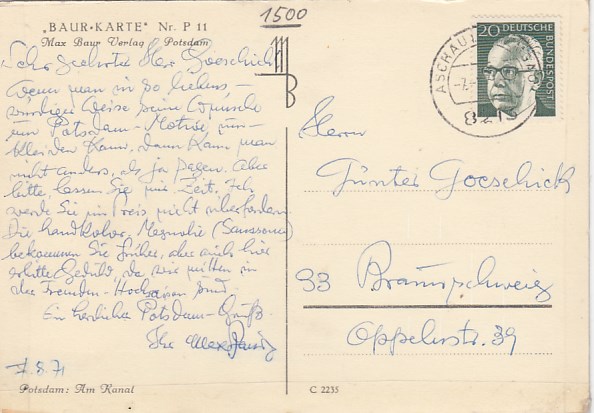 1500
„BAUR-KARTE" Nr. P 11
Max Baur Verlag Potsdam
Sehr geehrter Herr Goeschick
Wenn man in so liebens-
würdiger Weise seine Wünsche
um Potsdam-Motive um-
kleiden kann, dann kann man
nicht anders, als ja sagen. Aber
bitte lassen Sie mir Zeit. Ich
werde Sie im Preis nicht überfordern.
Die handkolor. (Sanssouci)
bekommen Sie früher, aber auch hier
bitte Geduld, da wir mitten in
der Fremden-Hochsaison sind.
Ein herzlicher Potsdam-Gruß
Ihr Max Baur
8.71
Potsdam: Am Kanal
MB
20
DEUTSCHE BUNDESPOST
ASCHAU
8213
Herrn
Günter Goeschick
33 Braunschweig
Oppelnstr. 39
C 2235